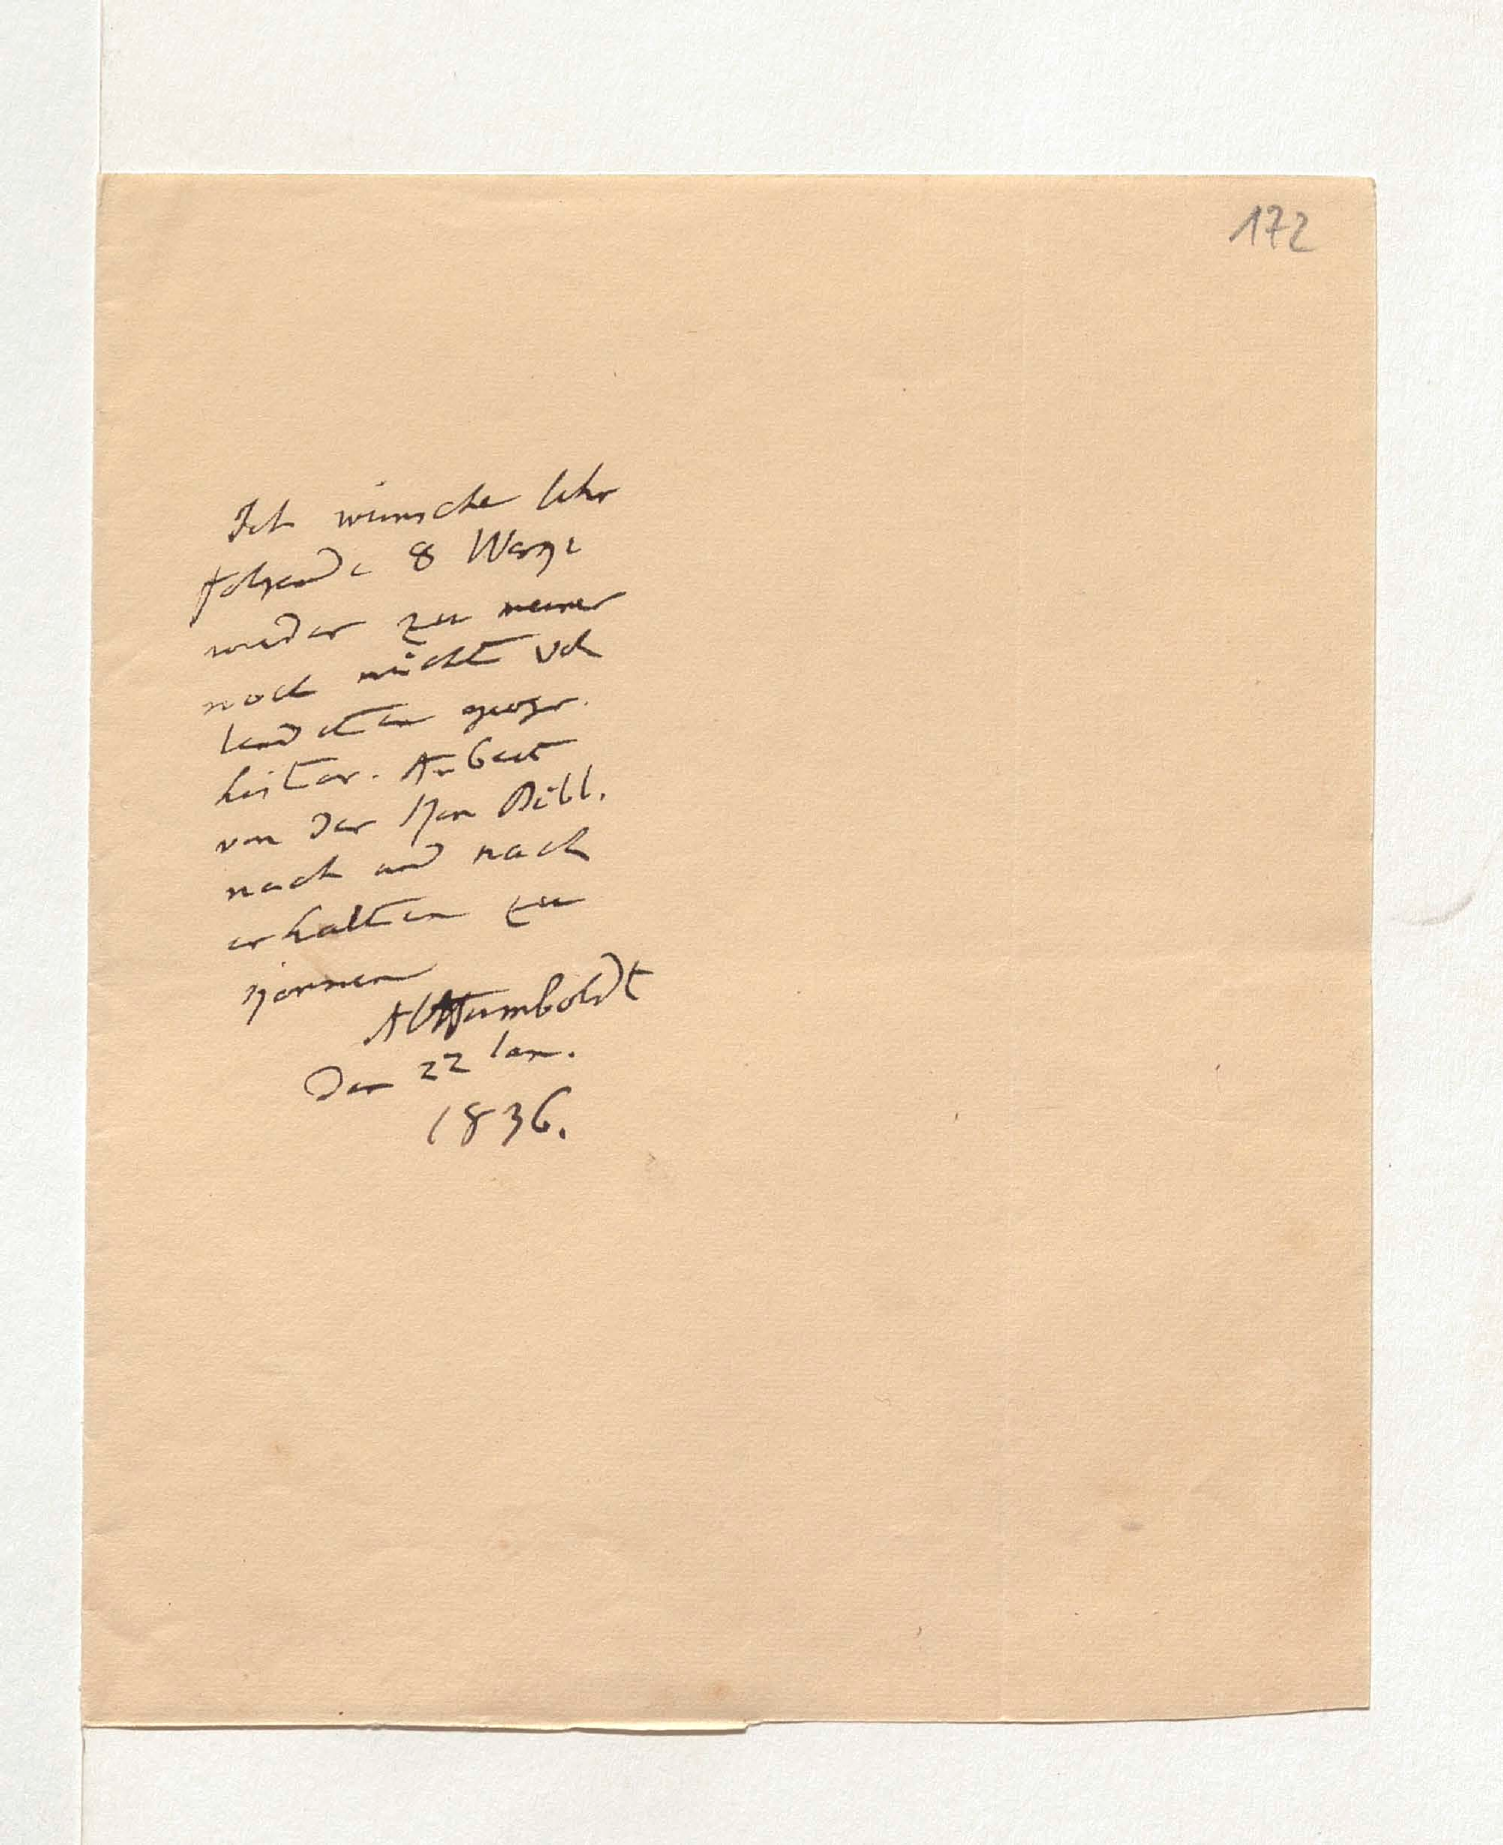 172
Ich wünsche sehr
folgende 8 Werke
wieder zu meiner
noch nicht vol
lendeten geogr.
histor. Arbeit
von der kön Bibl.
nach und nach
erhalten zu
können
AlHumboldt
Den 22 Jan.
1836.